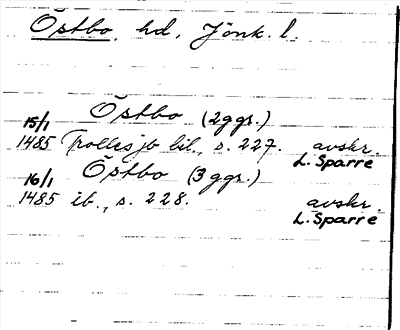 Östbo, hd, Jönk. l.
Östbo (2ggr.)
15/1
1485 Trollesjb bil., s. 227. avskr.
L. Sparre
Östbo (3ggr.)
16/1
1485 ib., s. 228. avskr.
L. Sparre